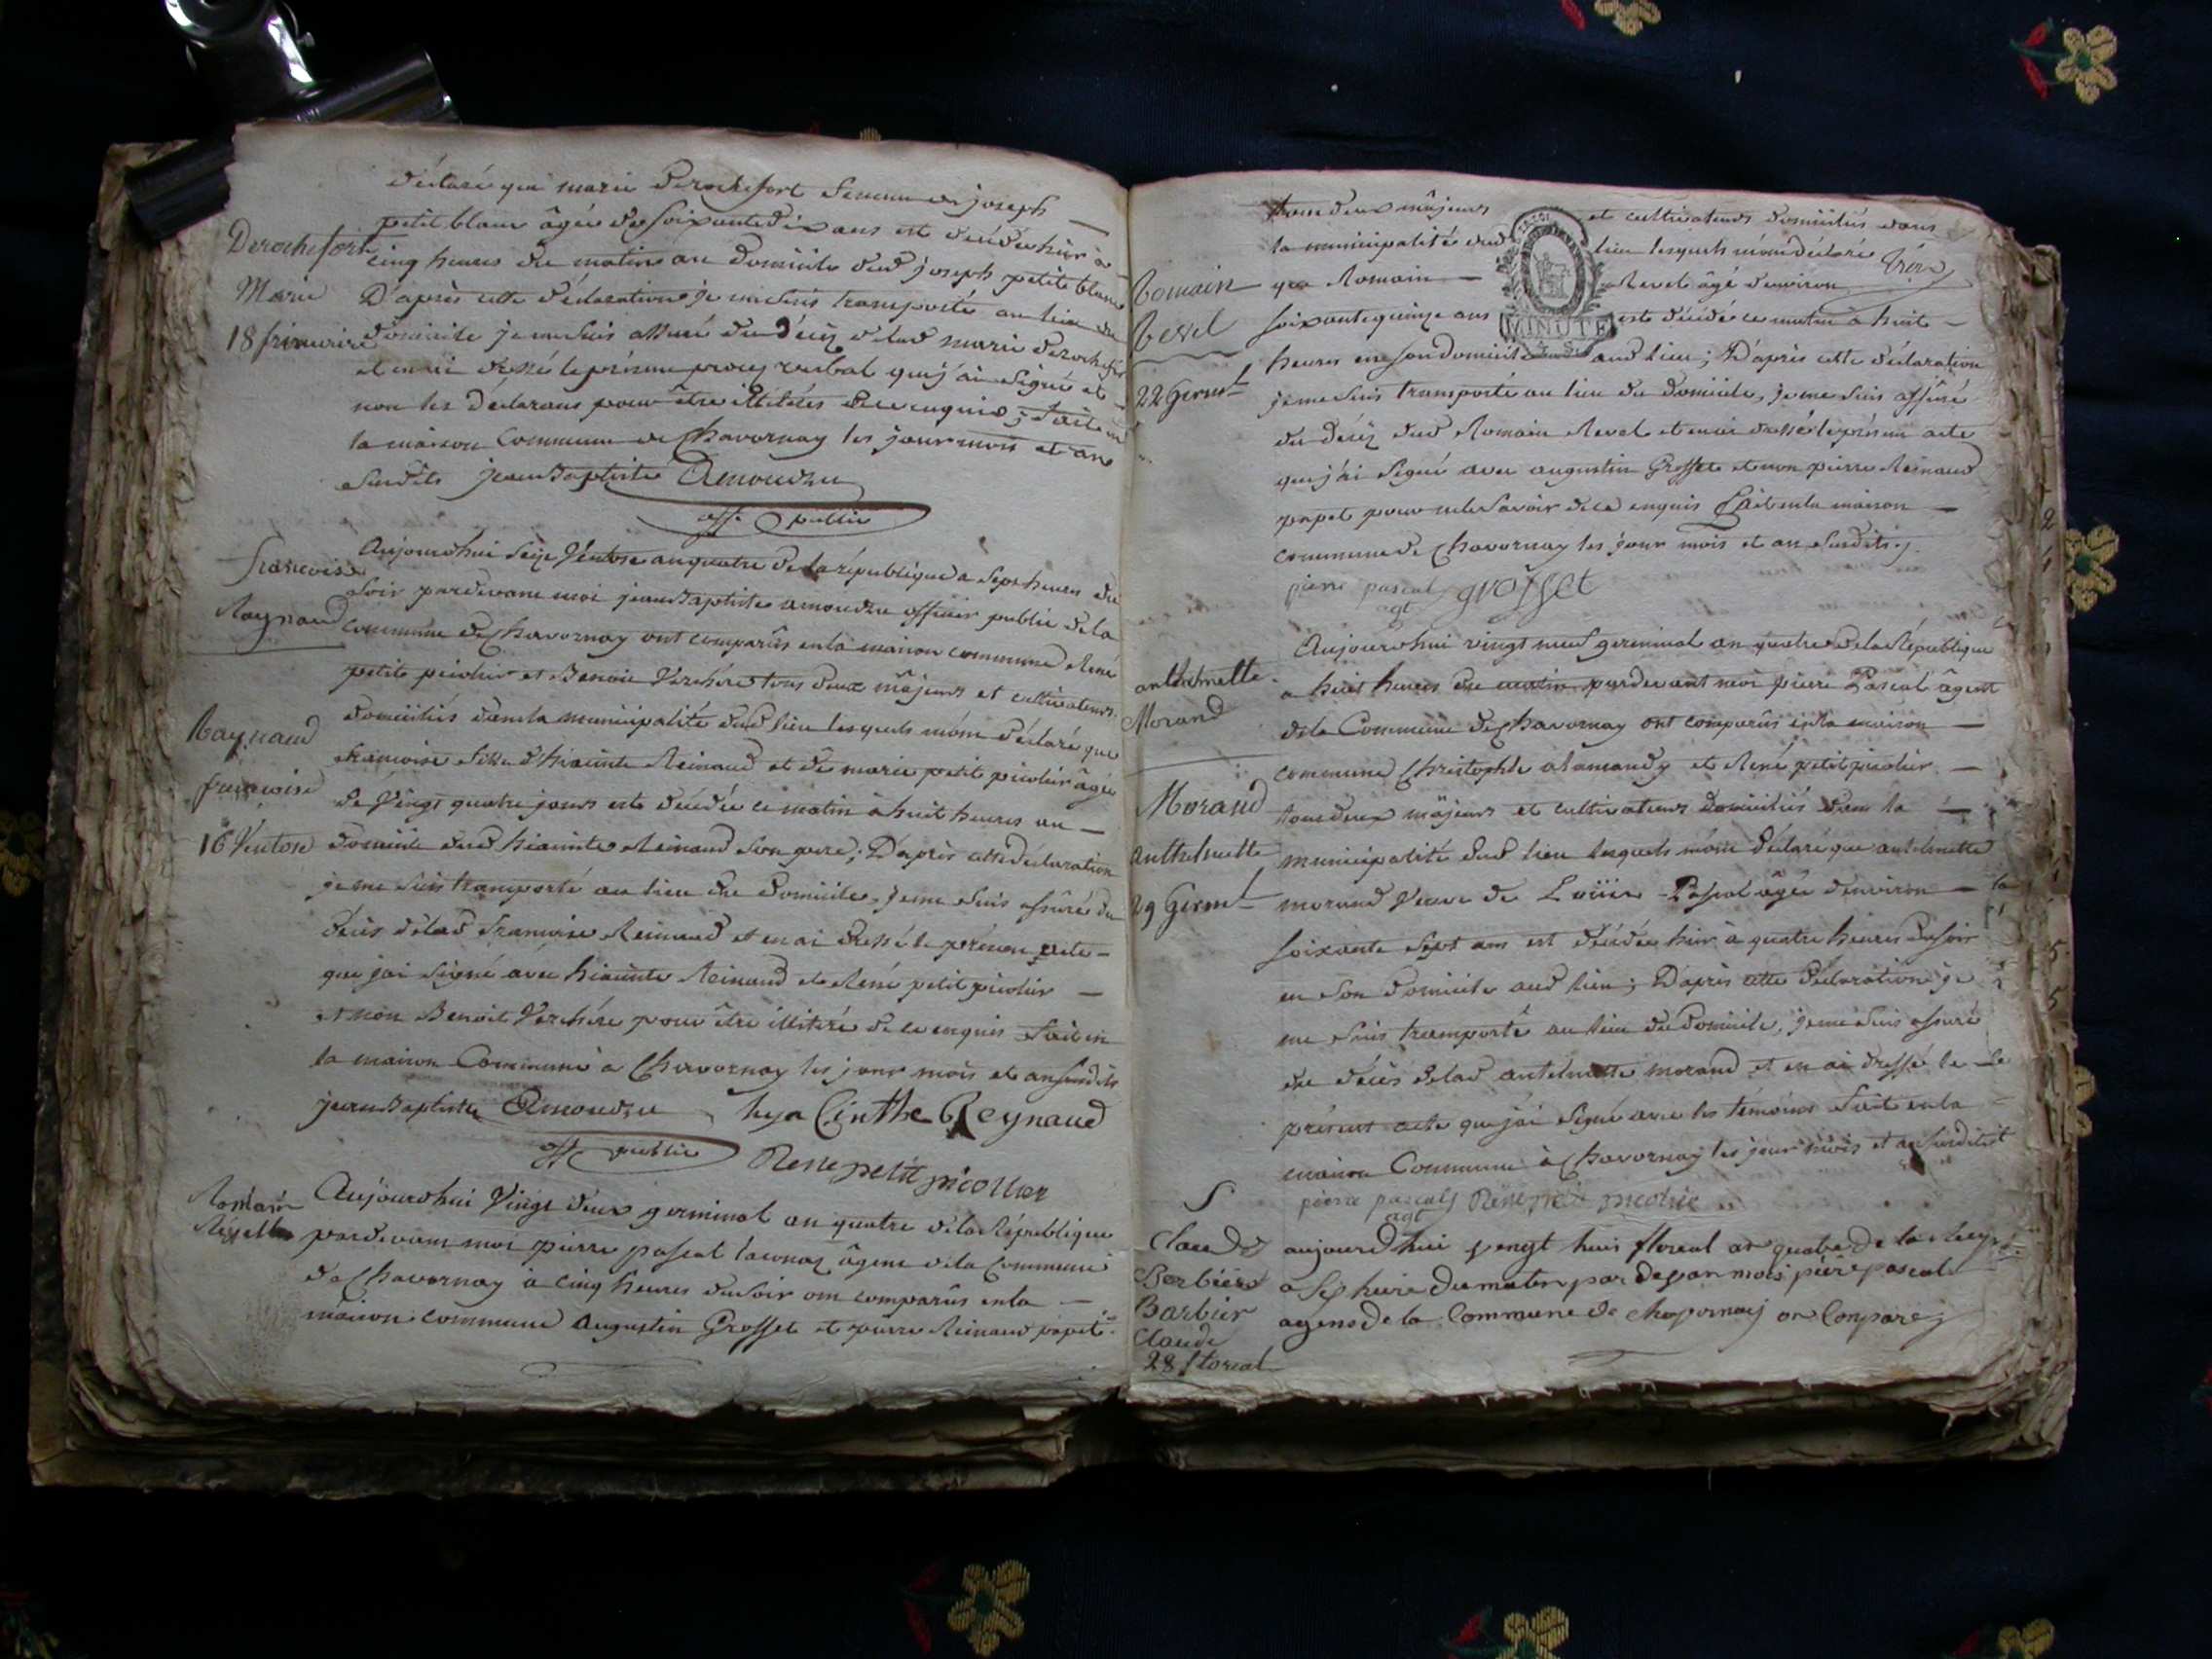 déclaré que marie Derochefort femme de joseph
petit blanc âgée de soixante dix ans est decédée hier à
Derochefort
cinq heures du matin au domicile dud joseph petit blanc
Marie
D'après cette déclaration je me suis transporté au lieu du
18 frimaire
domicile je me suis assuré du décis de lad marie derochefort
et en ai dressé le présent procez verbal que j'ai signé et
non les déclarans pour être illitérés de ce enquis; fait en
la maison commune de Chavornay les jour mois et an
susdits jean Baptiste Amoudru
off public
francoise
Raynaud
Aujourdhui seize Ventose an quatre de la république a sept heures du
soir pardevant moi jean Baptiste amoudru officier public de la
commune de Chavornay ont comparûs en la maison commune René
petit picolier et Benoit Verchère tous deux mâjeurs et cultivateurs
domiciliés dans la municipalité dud lieu lesquels m'ont déclaré que
Raynaud
francoise fille d'hiacinte Reinaud et de marie petit picolier âgée
francoise
de vingt quatre jours est décédée ce matin à huit heures au
16 Ventose
domicile dud hiacinte Reinaud son pere; D'après cette déclaration
je me suis transporté au lieu du domicile, je me suis assuré du
décès de lad francoise Reinaud et en ai dressé le présent acte
que j'ai signé avec hiacinte Reinaud et René petit picolier
et non Benoit Verchère pour être illitéré de ce enquis fait en
la maison Commune à Chavornay les jour mois et an susdits
jean Baptiste Amoudru hyaCinthe Reynaud
off public Rene petit picollier
Romain
Aujourdhui Vingt deux germinal an quatre de la République
pardevant moi pierre pascal âgent de la commune
de Chavornay à cinq heures du soir ont comparûs en la
maison commune Augustin Grosset et pierre Reinaud papet
tous deux mâjeurs et cultivateurs domiciliés dans
la municipalité dud lieu lesquels m'ont déclaré
Romain
que Romain Revel âgé d'environ
Revel
soixante quinze ans est décédé ce matin à huit
MINUTE
heures en son domicile aud lieu; D'après cette déclaration
22 Germl
je me suis transporté au lieu du domicile, je me suis assuré
du decez dud Romain Revel et en ai dressé le présent acte
que j'ai signé avec augustin Grosset et non pierre Reinaud
papet pour ne le savoir de ce enquis fait en la maison
commune de Chavornay les jour mois et an susdits
pierre pascal grosset
agt
Aujourdhui vingt neuf germinal an quatre de la République
anthelmette
a huit heures du matin pardevant moi pierre Pascal âgent
Morand
de la Commune de Chavornay ont comparûs en la maison
commune Christophle alamandy et René petit picolier
Morand
tous deux mâjeurs et cultivateurs domiciliés dans la
anthelmette
municipalité dud lieu lesquels m'ont déclaré que antelmette
29 Germl
morand Veuve de Loüis Pascal âgée d'environ
soixante sept ans est décédée hier à quatre heures du soir
en son domicile aud lieu; D'après cette déclaration je
me suis transporté au lieu du domicile, je me suis assuré
du décès de lad antelmette morand et en ai dressé le
présent acte que j'ai signé avec les témoins fait en la
maison Commune à Chavornay les jour mois et an susdits
pierre pascal Rene petit picolié
agt
Claude
aujourdhui vengt huit floreal an quatre de la
Berbier
a sep heure du maten par devan moi piere pascal
Barbier
agens de la Commune de chavornay on Conpare
Claude
28 floreal